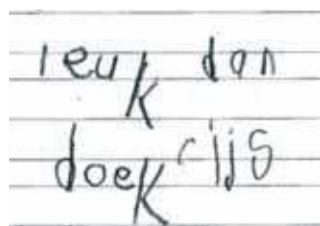 leuk dan
doek rijs